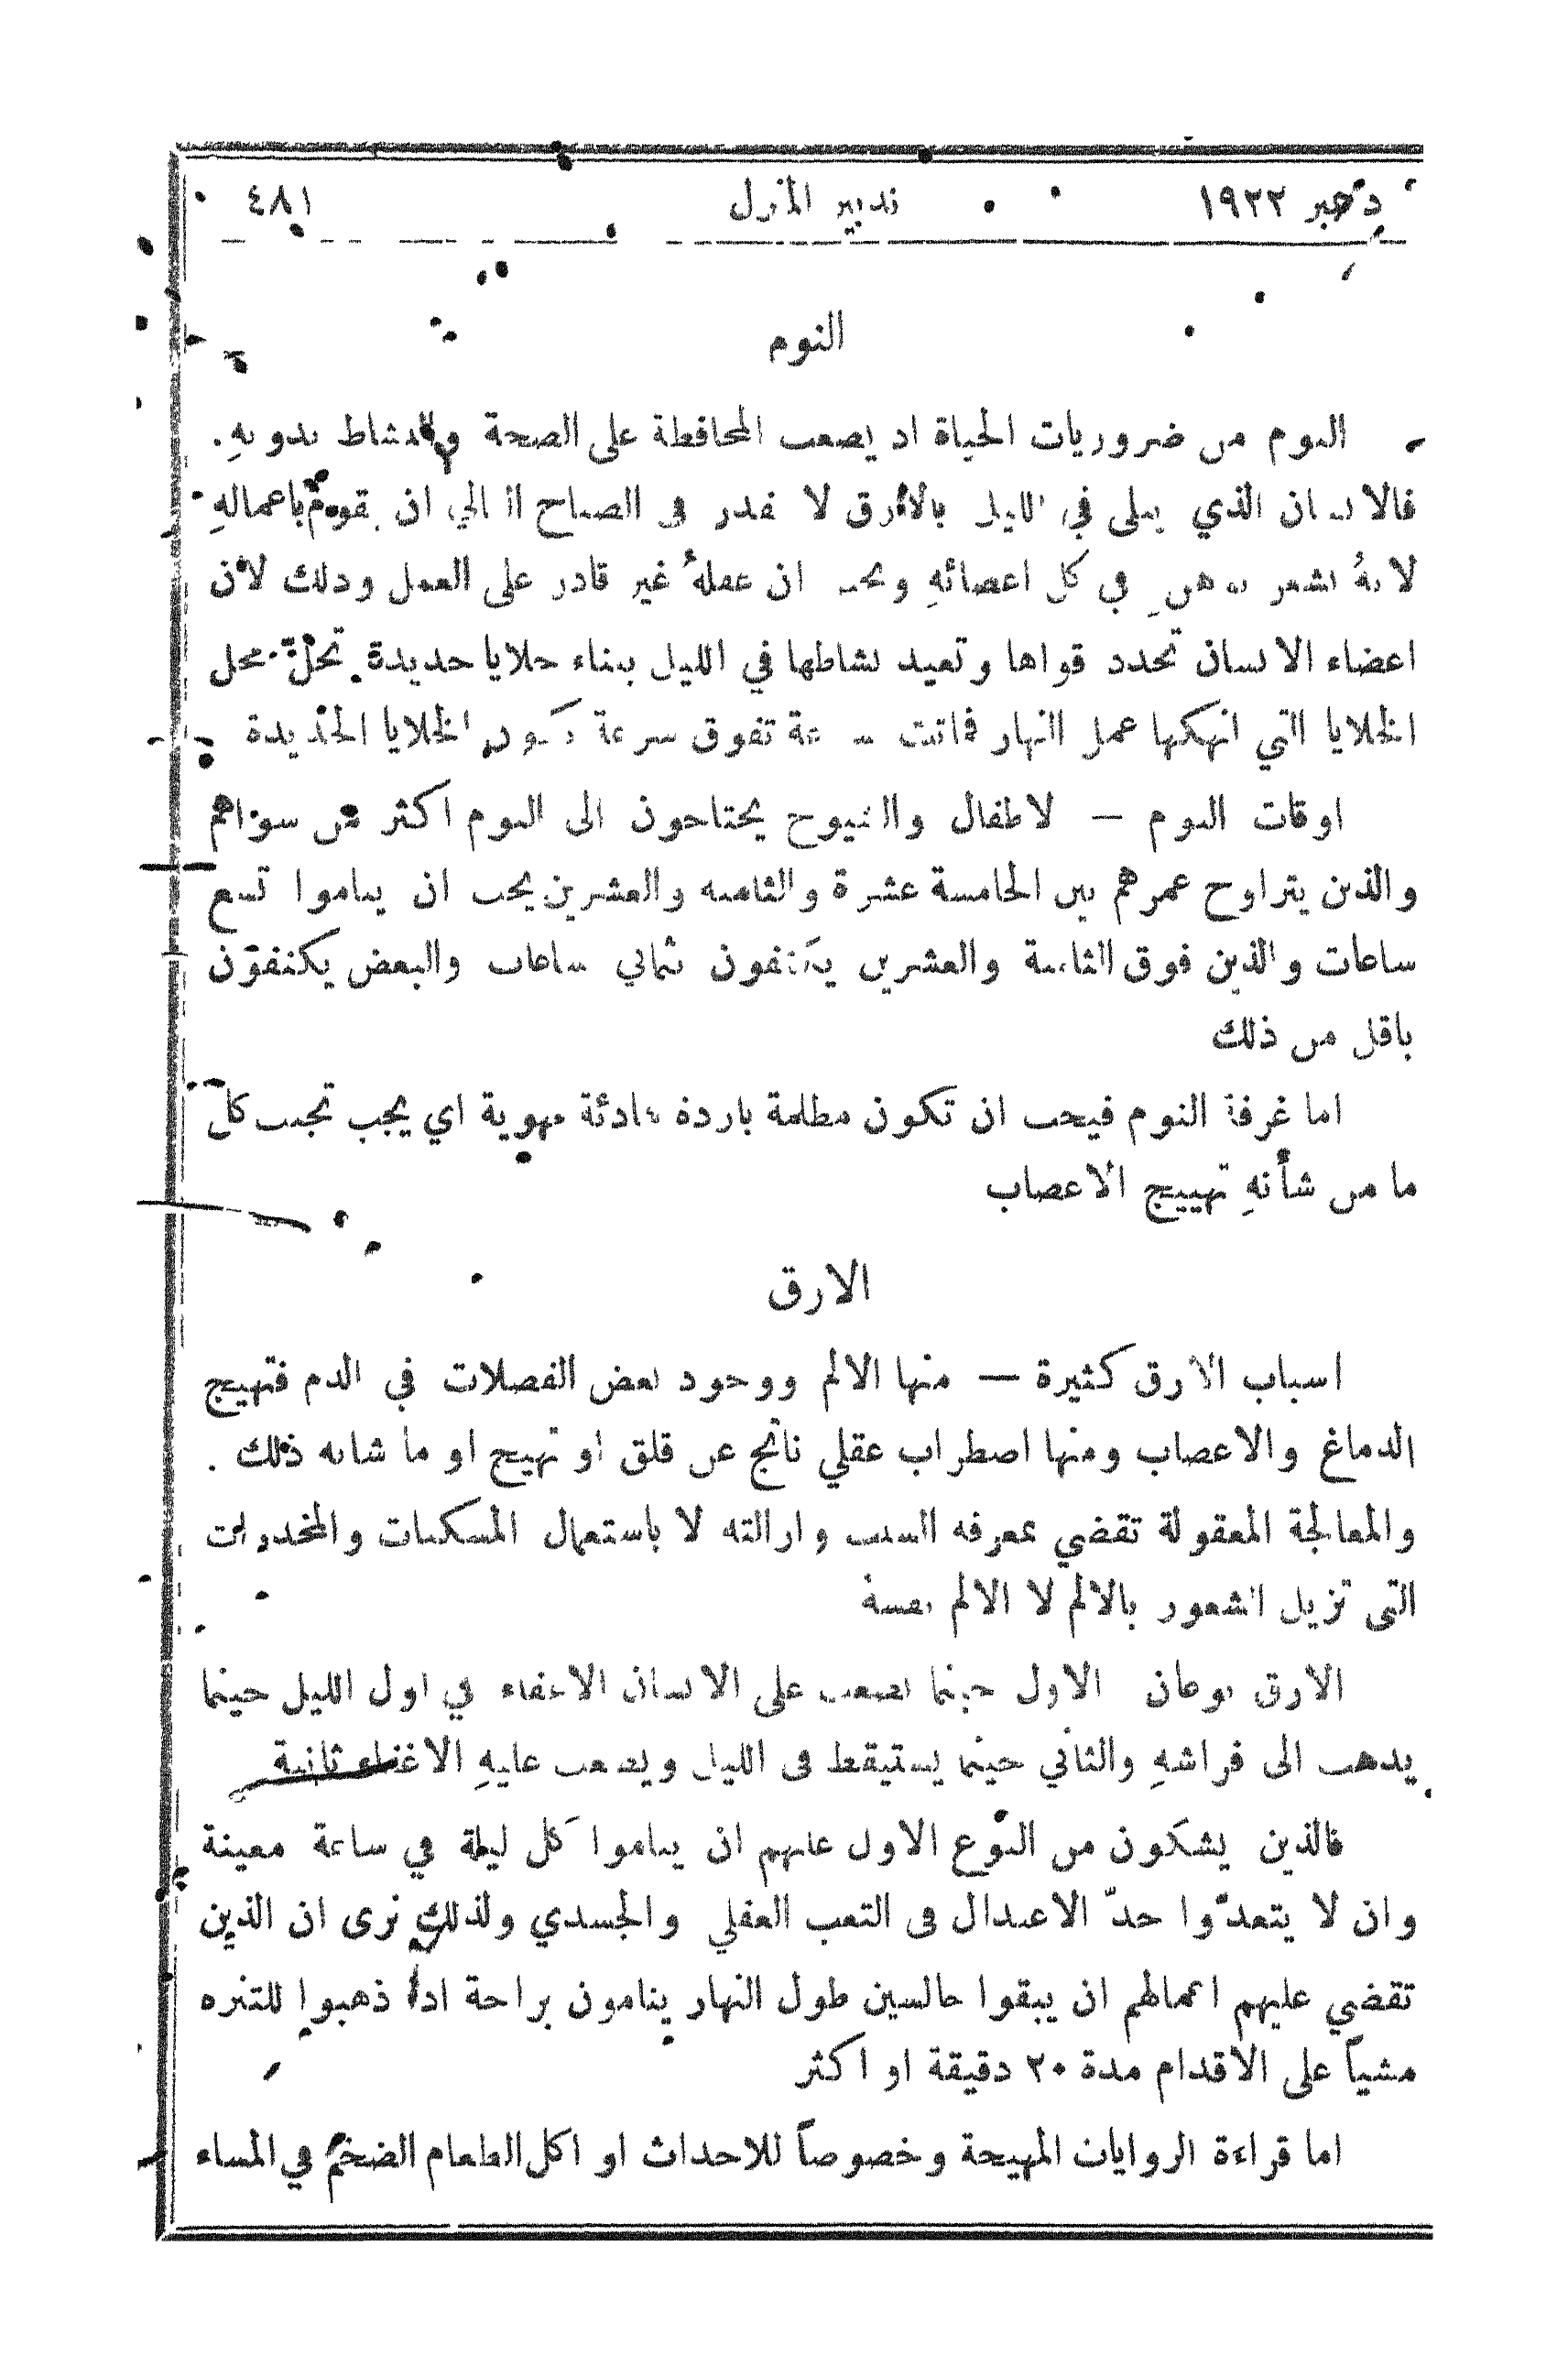 دسمبر ١٩٢٢ تدبير المنزل ٤٨١
النوم
النوم من ضروريات الحياة اذ يصعب المحافظة على الصحة والنشاط بدونهِ.
فالانسان الذي يبلى في الليل بالأرق لا يقدر في الصباح التالي ان يقوم باعمالهِ
لانهُ يشعر بوهن في كل اعضائهِ ويحس ان عقلهُ غير قادر على العمل وذلك لأن
اعضاء الانسان تجدد قواها وتعيد نشاطها في الليل ببناء خلايا جديدة تحلّ محل
الخلايا التي انهكها عمل النهار فماتت بسرعة تفوق سرعة تكون الخلايا الجديدة
اوقات النوم — الاطفال والشيوخ يحتاجون الى النوم اكثر من سواهم
والذين يتراوح عمرهم بين الخامسة عشرة والثامنة والعشرين يجب ان يناموا تسع
ساعات والذين فوق الثامنة والعشرين يكتفون بثماني ساعات والبعض يكتفون
باقل من ذلك
اما غرفة النوم فيجب ان تكون مظلمة باردة هادئة مهوية اي يجب تجنب كل
ما من شأنهِ تهييج الاعصاب
الارق
اسباب الارق كثيرة — منها الالم ووجود بعض الفضلات في الدم فتهيج
الدماغ والاعصاب ومنها اضطراب عقلي ناتج عن قلق او تهيج او ما شابه ذلك .
والمعالجة المعقولة تقضي بمعرفة السبب وازالته لا باستعمال المسكنات والمخدرات
التي تزيل الشعور بالالم لا الالم نفسهُ
الارق نوعان الاول حينما يصعب على الانسان الاغفاء في اول الليل حينما
يذهب الى فراشهِ والثاني حينما يستيقظ في الليل ويصعب عليهِ الاغفاء ثانية
فالذين يشكون من النوع الاول عليهم ان يناموا كل ليلة في ساعة معينة
وان لا يتعدّوا حدّ الاعتدال في التعب العقلي والجسدي ولذلك نرى ان الذين
تقضي عليهم اعمالهم ان يبقوا جالسين طول النهار ينامون براحة اذا ذهبوا للتنزه
مشياً على الاقدام مدة ٢٠ دقيقة او اكثر
اما قراءة الروايات المهيجة وخصوصاً للاحداث او اكل الطعام الضخم في المساء